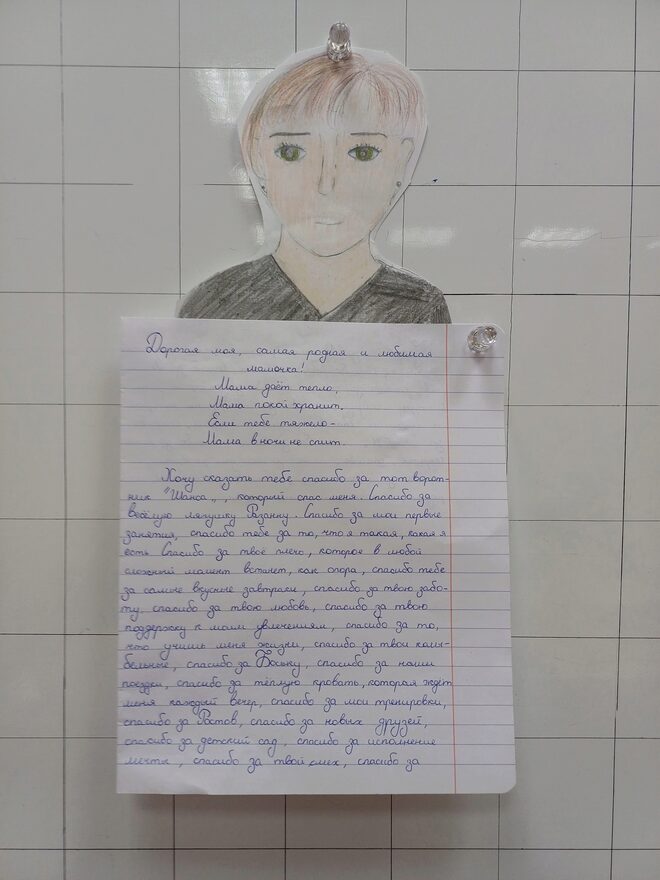 Дорогая моя, самая родная и любимая
мамочка!
Мама даёт тепло,
Мама покой хранит.
Если тебе тяжело -
Мама в ночи не спит.
Хочу сказать тебе спасибо за тот ворот-
ник "Шанса", который спас меня. Спасибо за
весёлую лягушку Разанну. Спасибо за мои первые
занятия, спасибо тебе за то, что я такая, какая я
есть Спасибо за твоё плечо, которое в любой
сложный момент встанет, как опора, спасибо тебе
за самые вкусные завтраки, спасибо за твою забо-
ту, спасибо за твою любовь, спасибо за твою
поддержку к моим увлечениям, спасибо за то,
что учишь меня жизни, спасибо за твои колы-
бельные, спасибо за Боську, спасибо за наши
поездки, спасибо за тёплую кровать, которая ждёт
меня каждый вечер, спасибо за мои тренировки,
спасибо за Ростов, спасибо за новых друзей,
спасибо за детский сад, спасибо за исполнение
мечты, спасибо за твой смех, спасибо за